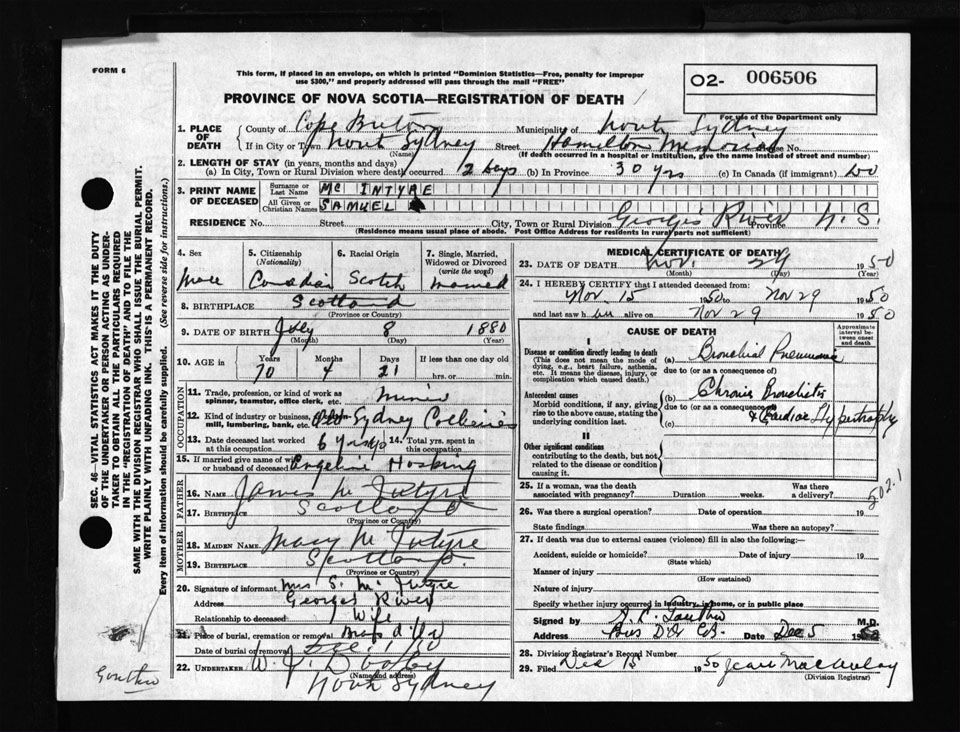 FORM 6
This form, if placed in an envelope, on which is printed "Dominion Statistics—Free, penalty for improper
use $300," and properly addressed will pass through the mail "FREE"
O2- 006506
For use of the Department only
PROVINCE OF NOVA SCOTIA—REGISTRATION OF DEATH
1. PLACE OF DEATH { County of Cape Breton Municipality of North Sydney
If in City or Town North Sydney Street Hamilton Memorial House No.
(Name) (If death occurred in a hospital or institution, give the name instead of street and number)
2. LENGTH OF STAY (in years, months and days)
(a) In City, Town or Rural Division where death occurred 12 Days (b) In Province 30 yrs (c) In Canada (if immigrant) do
3. PRINT NAME OF DECEASED { Surname or Last Name MC INTYRE
All Given or Christian Names SAMUEL
RESIDENCE No. Street City, Town or Rural Division Georges River Province N.S.
(Residence means usual place of abode. Post Office Address for residents in rural parts not sufficient)
4. Sex Male
5. Citizenship (Nationality) Canadian
6. Racial Origin Scotch
7. Single, Married, Widowed or Divorced (write the word) Married
8. BIRTHPLACE Scotland
(Province or Country)
9. DATE OF BIRTH July 8 1880
(Month) (Day) (Year)
10. AGE in Years Months Days If less than one day old
70 4 21 hrs. or min.
OCCUPATION
11. Trade, profession, or kind of work as
spinner, teamster, office clerk, etc. Miner
12. Kind of industry or business, as
mill, lumbering, bank, etc. Old Sydney Collieries
13. Date deceased last worked at this occupation 6 yrs ago
14. Total yrs. spent in this occupation
15. If married give name of wife
or husband of deceased Angeline Hosking
FATHER
16. NAME James McIntyre
17. BIRTHPLACE Scotland
(Province or Country)
MOTHER
18. MAIDEN NAME Mary McIntyre
19. BIRTHPLACE Scotland
(Province or Country)
20. Signature of informant Mrs S. McIntyre
Address Georges River
Relationship to deceased Wife
21. Place of burial, cremation or removal
Date of burial or removal Dec 1/50
22. UNDERTAKER W. J. Dooley
(Name and address)
North Sydney
MEDICAL CERTIFICATE OF DEATH
23. DATE OF DEATH Nov. 29 1950
(Month) (Day) (Year)
24. I HEREBY CERTIFY that I attended deceased from:
Nov. 15 1950 to Nov 29 1950
and last saw him alive on Nov 29 1950
CAUSE OF DEATH
Approximate interval between onset and death
I
Disease or condition directly leading to death
(This does not mean the mode of
dying, e.g., heart failure, asthenia,
etc. It means the disease, injury, or
complication which caused death.)
(a) Bronchial Pneumonia
due to (or as a consequence of)
Antecedent causes
Morbid conditions, if any, giving
rise to the above cause, stating the
underlying condition last.
(b) Chronic Bronchitis
due to (or as a consequence of)
(c) & Cardiac Hypertrophy
II
Other significant conditions
contributing to the death, but not
related to the disease or condition
causing it.
502.1
25. If a woman, was the death
associated with pregnancy? Duration weeks. Was there a delivery?
26. Was there a surgical operation? Date of operation 19
State findings Was there an autopsy?
27. If death was due to external causes (violence) fill in also the following:—
Accident, suicide or homicide? Date of injury 19
(State which)
Manner of injury
(How sustained)
Nature of injury
Specify whether injury occurred in industry, in home, or in public place
Signed by M.D.
Address Date Dec 5 19
28. Division Registrar's Record Number
29. Filed Dec 15 1950 Jean MacAulay
(Division Registrar)
SEC. 46—VITAL STATISTICS ACT MAKES IT THE DUTY
OF THE UNDERTAKER OR PERSON ACTING AS UNDER-
TAKER TO OBTAIN ALL THE PARTICULARS REQUIRED
IN THE "REGISTRATION OF DEATH" AND TO FILE THE
SAME WITH THE DIVISION REGISTRAR WHO SHALL ISSUE THE BURIAL PERMIT.
WRITE PLAINLY WITH UNFADING INK. THIS IS A PERMANENT RECORD.
Every item of information should be carefully supplied. (See reverse side for instructions.)